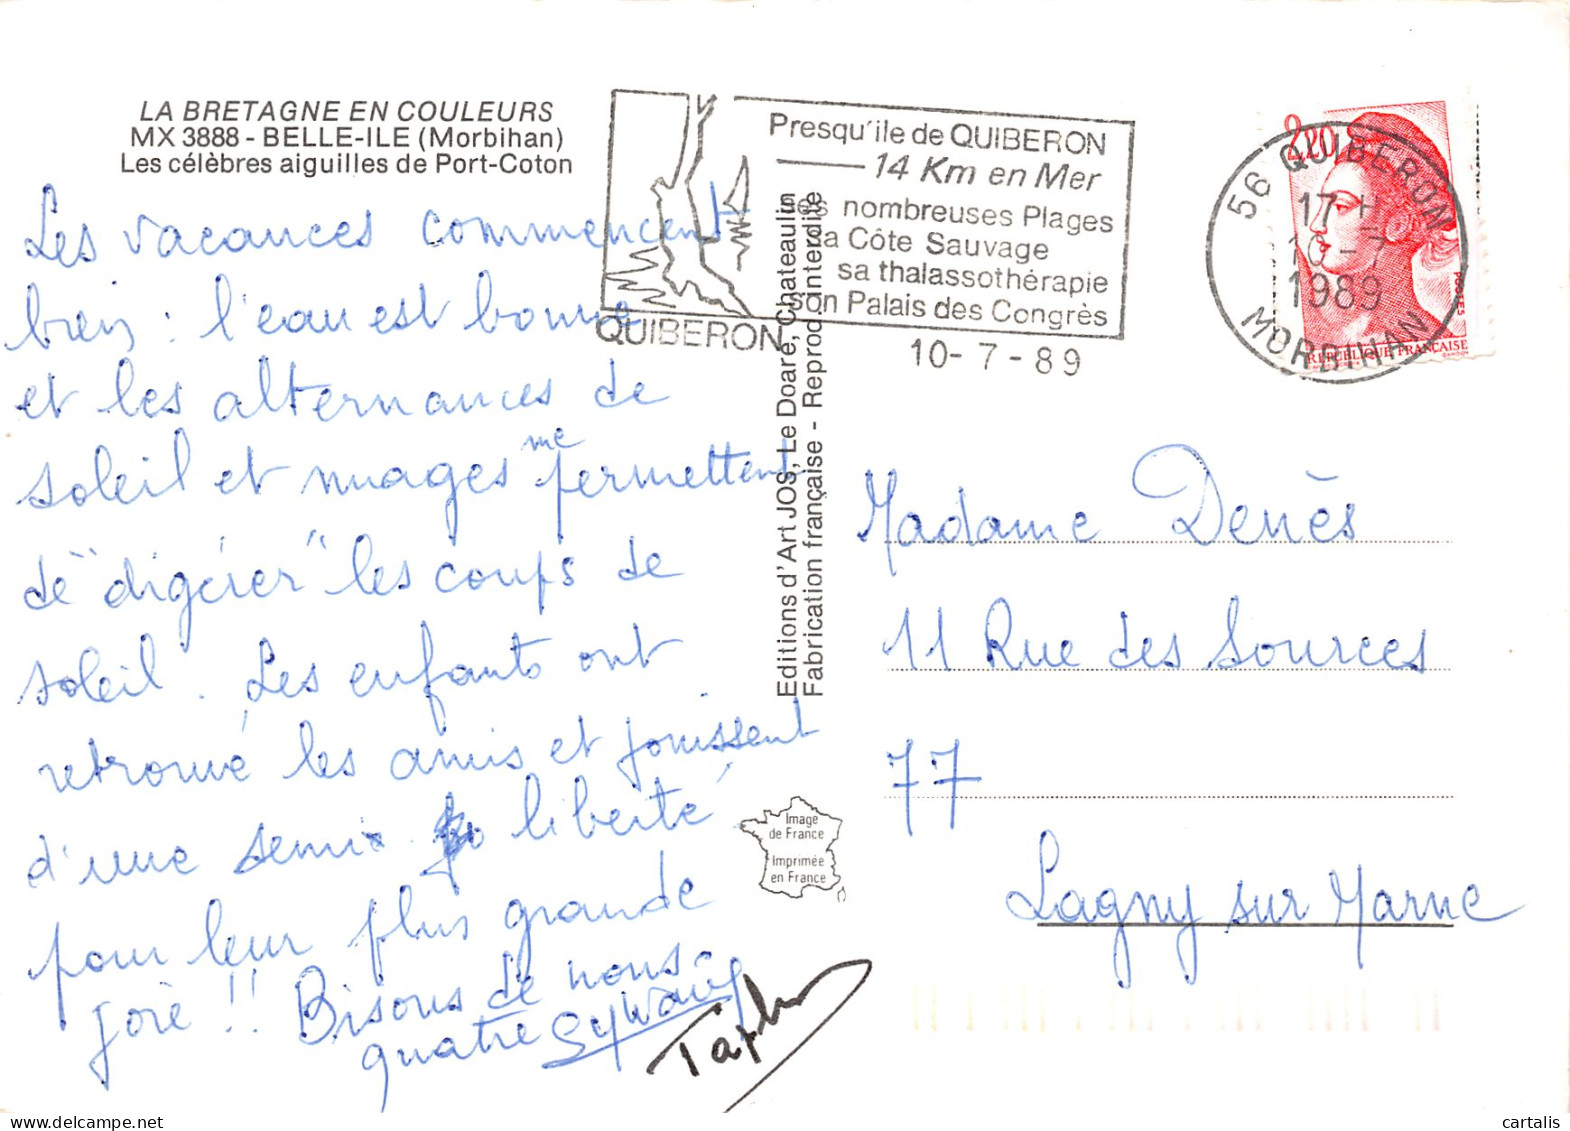 LA BRETAGNE EN COULEURS
MX 3888 - BELLE-ILE (Morbihan)
Les célèbres aiguilles de Port-Coton
Les vacances commencent
bien : l'eau est bonne
et les alternances de
soleil et nuages me permettent
de "digérer" les coups de
soleil. Les enfants ont
retrouvé les amis et jouissent
d'une semi liberté
pour leur plus grande
joie !! Bisous de nous
quatre Sylvain
QUIBERON
Presqu'ile de QUIBERON
14 Km en Mer
ses nombreuses Plages
sa Côte Sauvage
sa thalassothérapie
son Palais des Congrès
10-7-89
56 QUIBERON
17 H
10-7
1989
MORBIHAN
2,20
POSTES
REPUBLIQUE FRANÇAISE
Editions d'Art JOS, Le Doaré, Chateaulin
Fabrication française - Reprod. interdite
Image
de France
Imprimée
en France
Madame Denès
11 Rue des Sources
77
Lagny sur Marne
cartalis